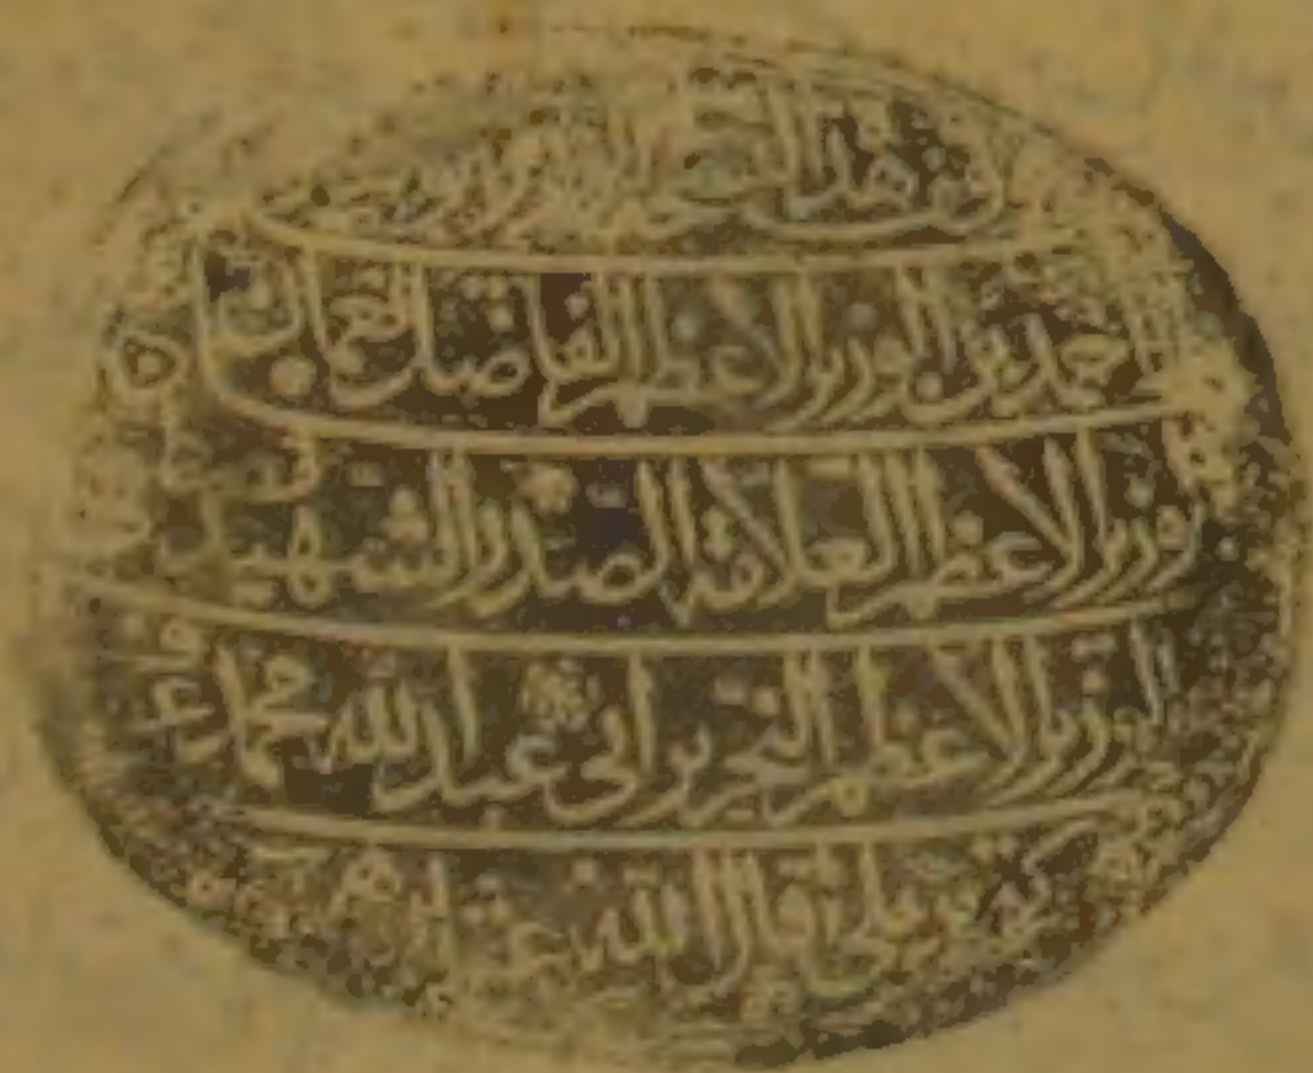 وقف هذا
احمد بن الوزير الاعظم الفاضل النعمان بن
الوزير الاعظم العلامة الصدر الشهيد مصطفى
الوزير الاعظم النحرير ابى عبد الله محمد عرف
بكوپريلى اقال الله عثارهم